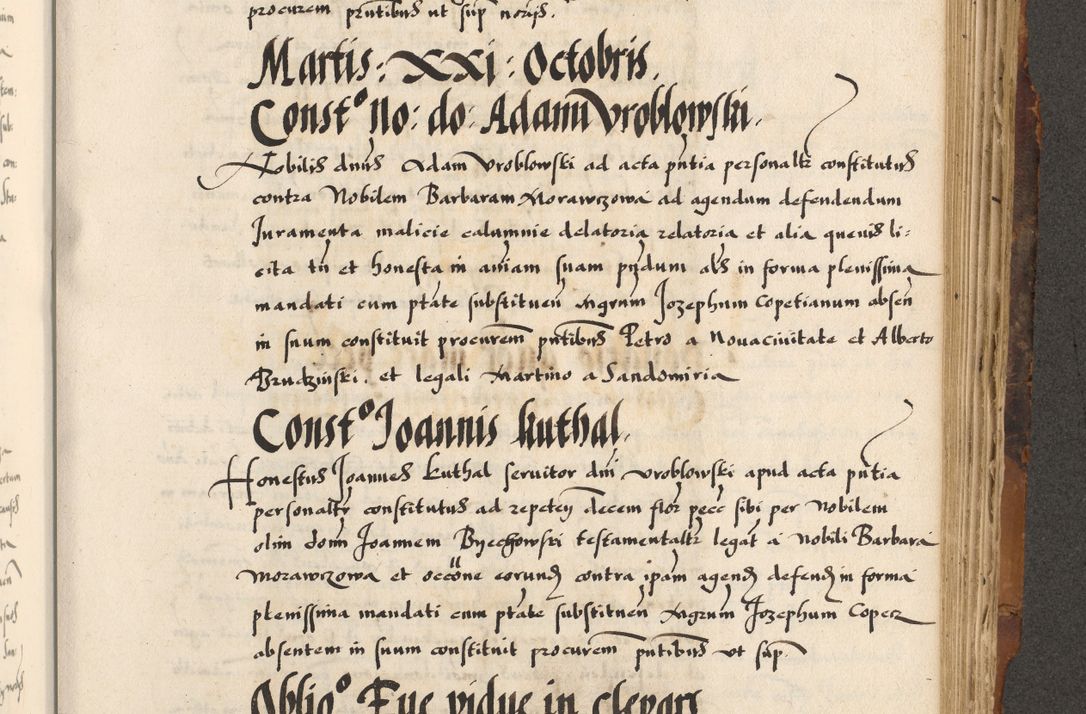 procurem pntibus ut sup norijs.
Martis: XXI: Octobris.
Const° No: do: Adami Vroblowski.
Nobilis dnus Adam Vroblowski ad acta pntia personalr constitutus
contra Nobilem Barbaram Morawczowa ad agendum defendendum
Juramenta malicie calumnie delatoria relatoria et alia quevis li:
cita tn et honesta in aniam suam pndum als in forma plenissima
mandati cum ptate substituen Mgrum Jozephum Copetianum absen
in suum constituit procurem pntibus Petro a Novacivitate et Alberto
Brudzinski. et legali Martino a Sandomiria
Const° Joannis Kuthal.
Honestus Joannes Kuthal servitor dni Vroblowski apud acta pntia
personalr constitutus ad repeten decem flor pecc sibi per Nobilem
olim dom Joannem Byechowski testamentalr legat a Nobili Barbara
Morawczowa et occone eorund contra ipam agend defend in forma
plenissima mandati cum ptate substituen Mgrum Jozephum Copecz
absentem in suum constituit procurem pntibus ut sup
Oblig° Eve vidue in Clepars